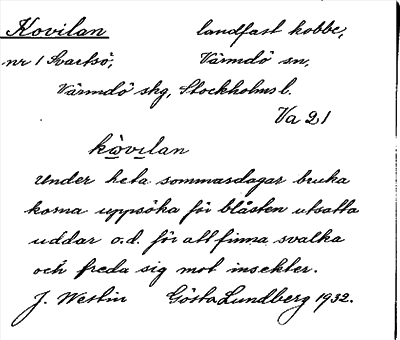 Kovilan landfast kobbe,
nr 1 Svartsö, Värmdö sn,
Värmdö skg, Stockholms l.
Va 21
kòvilan
Under heta sommardagar bruka
korna uppsöka för blåsten utsatta
uddar o.d. för att finna svalka
och freda sig mot insekter.
J. Westin Gösta Lundberg 1932.